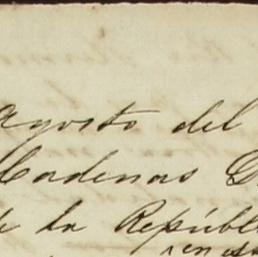 Agosto del
Cadenas
de la Repúbl